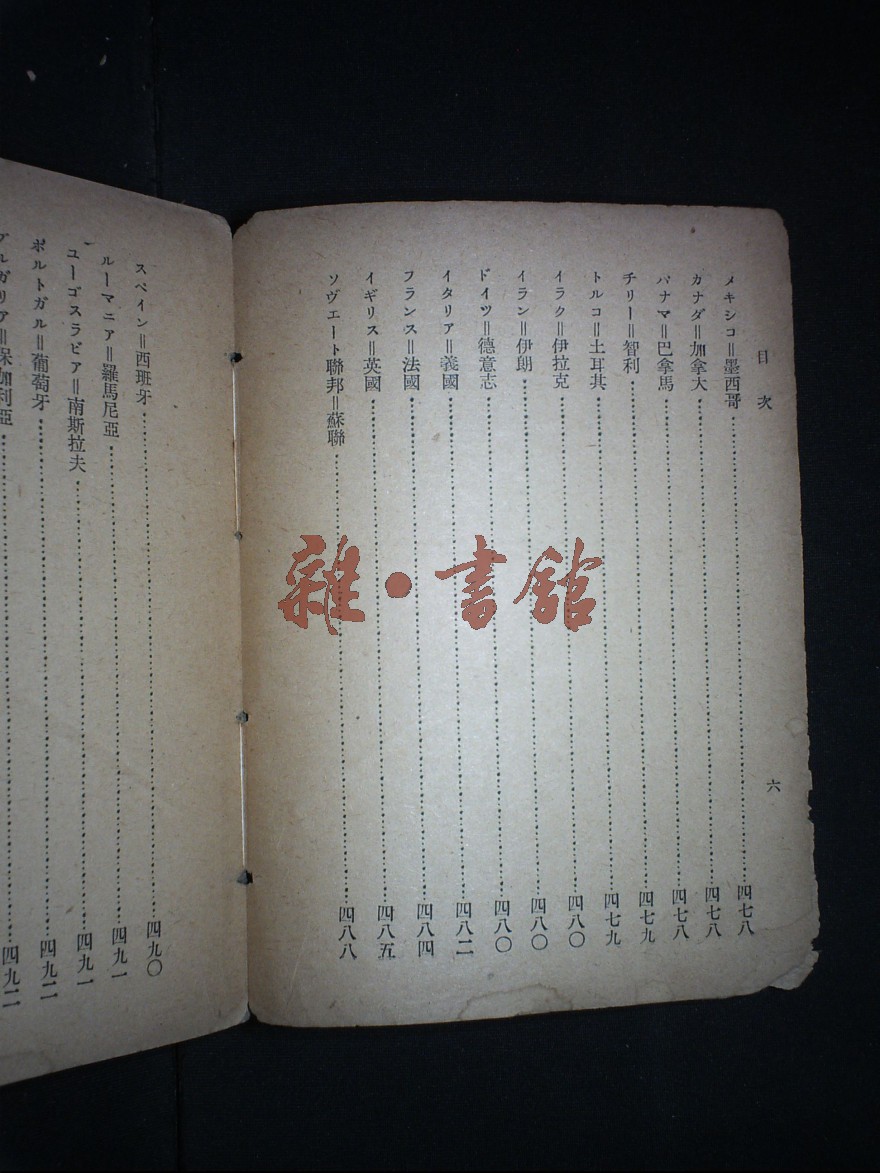 目次
六
メキシコ=墨西哥…四七八
カナダ=加拿大…四七八
パナマ=巴拿馬…四七八
チリー=智利…四七九
トルコ=土耳其…四七九
イラク=伊拉克…四八〇
イラン=伊朗…四八〇
ドイツ=德意志…四八〇
イタリア=義國…四八二
フランス=法國…四八四
イギリス=英國…四八五
ソヴエート聯邦=蘇聯…四八八
スペイン=西班牙…四九〇
ルーマニア=羅馬尼亞…四九一
ユーゴスラビア=南斯拉夫…四九一
ポルトガル=葡萄牙…四九二
ブルガリア=保加利亞…四九二
雜·書館